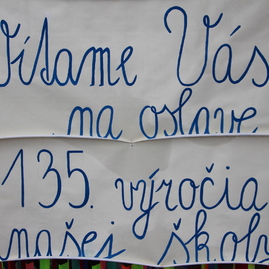 Vítame Vás
na oslave
135. výročia
našej školy